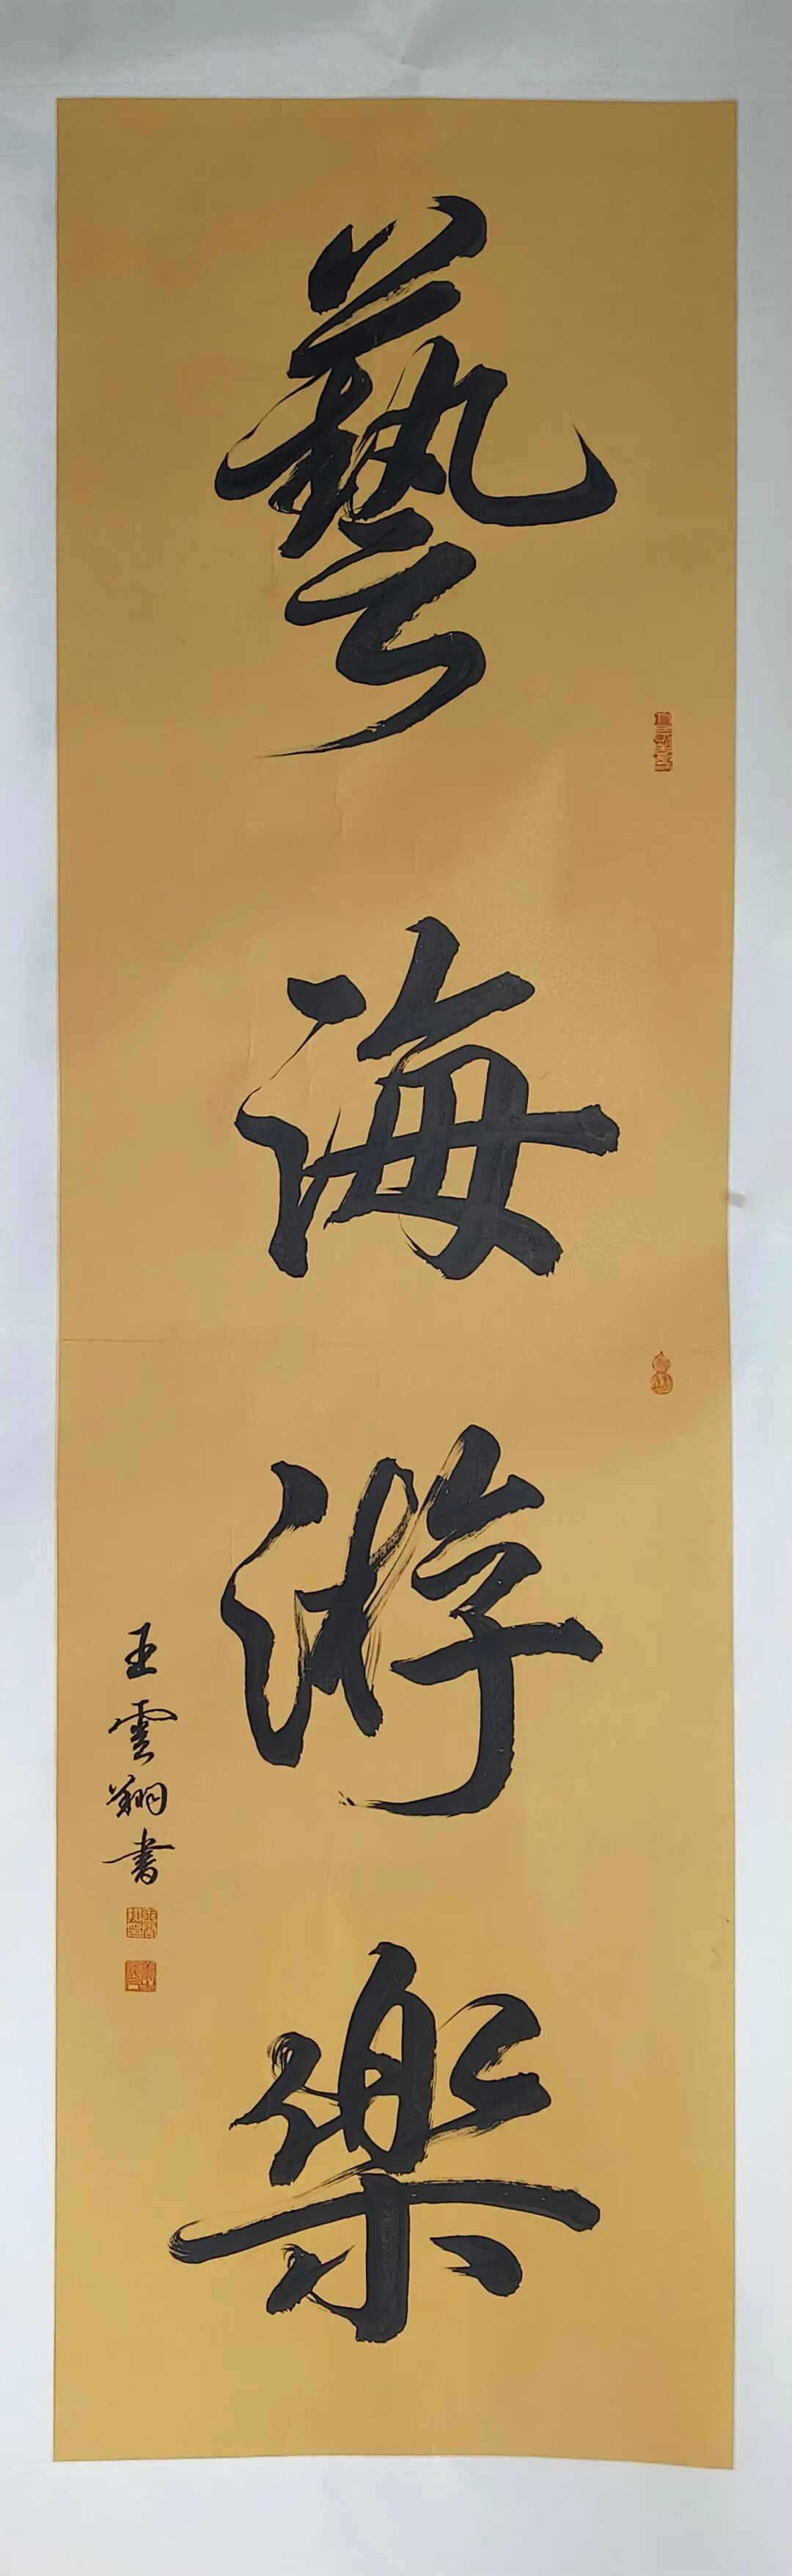 藝海游樂
王雲翔書